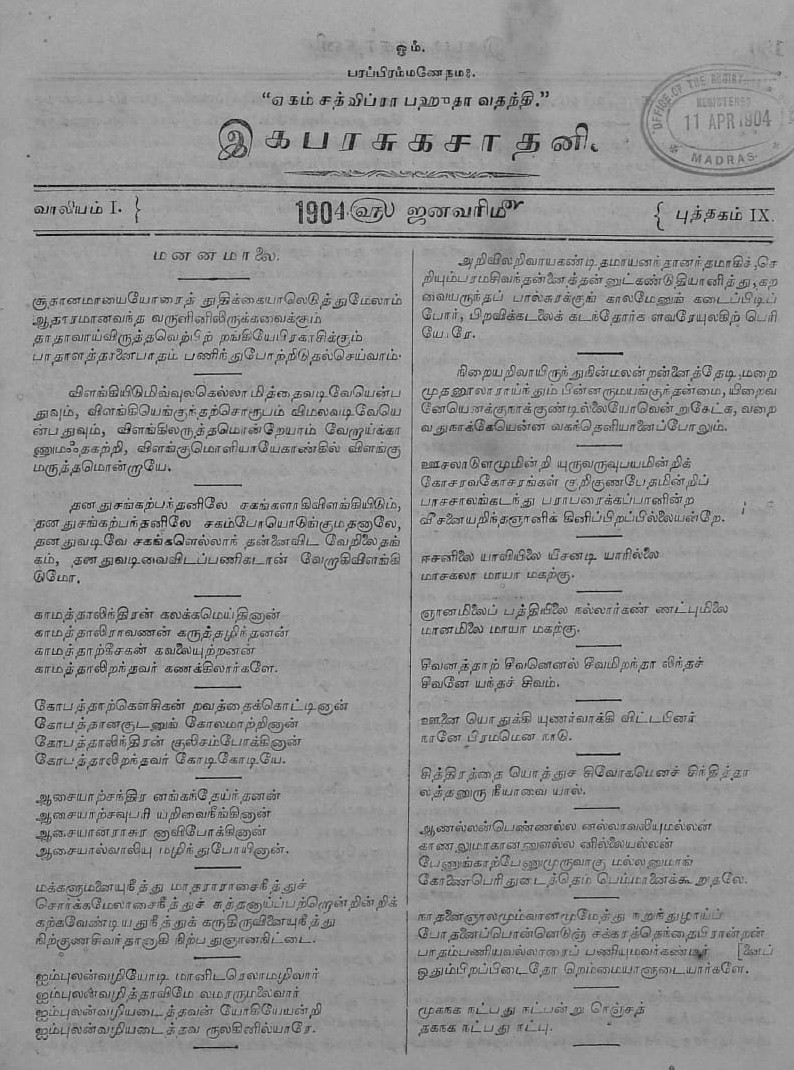 ஓம்.
பரப்பிரம்மணேநமஃ.
“ஏகம் சத்விப்ரா பஹுதா வதந்தி.”
இகபரசுகசாதனி.
OFFICE OF THE
REGISTERED
11 APR 1904
MADRAS
வாலியம் I.
1904 ௵ ஜனவரி ௴
புத்தகம் IX.
மனனமாலை.
சூதானமாயையோரைத் துதிக்கையாலெடுத்துமேலாம்
ஆதாரமானவந்த வருளினிலிருக்கவைக்கும்
தாதாவாய்விருத்தவெற்பிற் றங்கியேபிரகாசிக்கும்
பாதாளத்தானைபாதம் பணிந்துபோற்றிடுதல்செய்வாம்.
விளங்கியிடுமிவ்வுலகெல்லா மித்தைவடிவேயென்ப
துவும், விளங்கியெங்குந்தற்சொரூபம் விமலவடிவேயெ
ன்பதுவும், விளங்கிலருத்தமொன்றேயாம் வேறாய்க்கா
ணுமஃதகற்றி, விளங்குமொளியாயேகாண்கில் விளங்கு
மருத்தமொன்றாயே.
தனதுசங்கற்பந்தனிலே சகங்களாகிவிளங்கியிடும்,
தனதுசங்கற்பந்தனிலே சகம்போயொடுங்குமதனாலே,
தனதுவடிவே சகங்களெல்லாந் தன்னைவிட வேறிலைதங்
கம், தனதுவடிவைவிடப்பணிகடான் வேறாகிவிளங்கி
டுமோ.
காமத்தாலிந்திரன் கலக்கமெய்தினான்
காமத்தாலிராவணன் கருத்தழிந்தனன்
காமத்தாற்கீசகன் கவலையுற்றனன்
காமத்தாலிறந்தவர் கணக்கிலார்களே.
கோபத்தாற்கௌசிகன் றவத்தைக்கொட்டினான்
கோபத்தானகுடனுங் கோலமாற்றினான்
கோபத்தாலிந்திரன் குலிசம்போக்கினான்
கோபத்தாலிறந்தவர் கோடிகோடியே.
ஆசையாற்சந்திர னங்கந்தேய்ந்தனன்
ஆசையாற்சவுபரி யறிவைநீங்கினான்
ஆசையான்ராசுர னாவிபோக்கினான்
ஆசையால்வாலியு மழிந்துபோயினான்.
மக்களுமனையுநீத்து மாதராராசைநீத்துச்
சொர்க்கமேலாசைநீத்துச் சுத்தனாய்ப்பற்றொன்றின்றிக்
கற்கவேண்டியதுநீத்துக் கருகிருவினையுநீத்து
நிற்குணசிவர்தானாகி நிற்பதுஞானநிட்டை.
ஐம்புலன்வழியோடி மானிடரெலாமழிவார்
ஐம்புலன்வழித்தாவிமே லமரருமலைவார்
ஐம்புலன்வழியடைத்தவன் யோகியேயன்றி
ஐம்புலன்வழியடைத்தவ ருலகினில்யாரே.
அறிவிலறிவாயகண்டி தமாயனந்தானந்தமாகிச், செ
றியும்பரமசிவந்தன்னைத்தன்னுட்கண்டுதியானித்து, கற
வையருந்தப் பால்சுரக்குங் காலமேனுங் கடைப்பிடிப்
போர், பிறவிக்கடலைக் கடந்தோர்க ளவரேயுலகிற் பெரி
யோரே.
நிறையறிவாயிருந்துநின்மலன்றன்னைத்தேடி, மறை
முதனூலாராய்ந்தும் பின்னருமயங்குந்தன்மை, யிறைவ
னேயெனக்குநாக்குண்டில்லையோவென்றுகேட்க, வறை
வதுநாக்கேயென்ன வகந்தெளியானைப்போலும்.
ஊசலாடுளமுமின்றி யுருவருவுபயமின்றிக்
கோசரவகோசரங்கள் குறிகுணபேதமின்றிப்
பாசசாலங்கடந்து பராபரைக்கப்பானின்ற
வீசனையறிந்தஞானிக் கினிப்பிறப்பில்லையன்றே.
ஈசனிலை யாவியிலை யீசனடி யாரில்லை
மாசகலா மாயா மகற்கு.
ஞானமிலைப் பத்தியிலை நல்லார்கண் ணட்புமிலை
மானமிலை மாயா மகற்கு.
சீவனத்தாற் சீவனெனல் சீவமிறந்தா லிந்தச்
சிவனே யந்தச் சிவம்.
ஊனை யொதுக்கி யுணர்வாக்கி விட்டபினர்
நானே பிரமமென நாடு.
சித்திரத்தை யொத்துச சிவோகமெனச் சிந்தித்தா
லத்தனுரு நீயாவை யால்.
ஆணல்லன்பெண்ணல்ல னல்லாவலியுமல்லன்
காணலுமாகானுளல்ல னில்லையல்லன்
பேணுங்காற்பேணுமுருவாகு மல்லனுமாங்
கோணைபெரிதுடைத்தெம் பெம்மானைக்கூறுதலே.
நாதனைஞாலமும்வானமுமேத்து நறுந்துழாய்ப்
போதனைப்பொன்னெடுஞ் சக்கரத்தெந்தைபிரான்றன்
பாதம்பணியவல்லாரைப் பணியுமவர்கண்டீர் [னைப்
ஓதும்பிறப்பிடைதோ றெம்மையாளுடையார்களே.
முகநக நட்பது நட்பன்று நெஞ்சத்
தகநக நட்பது நட்பு.